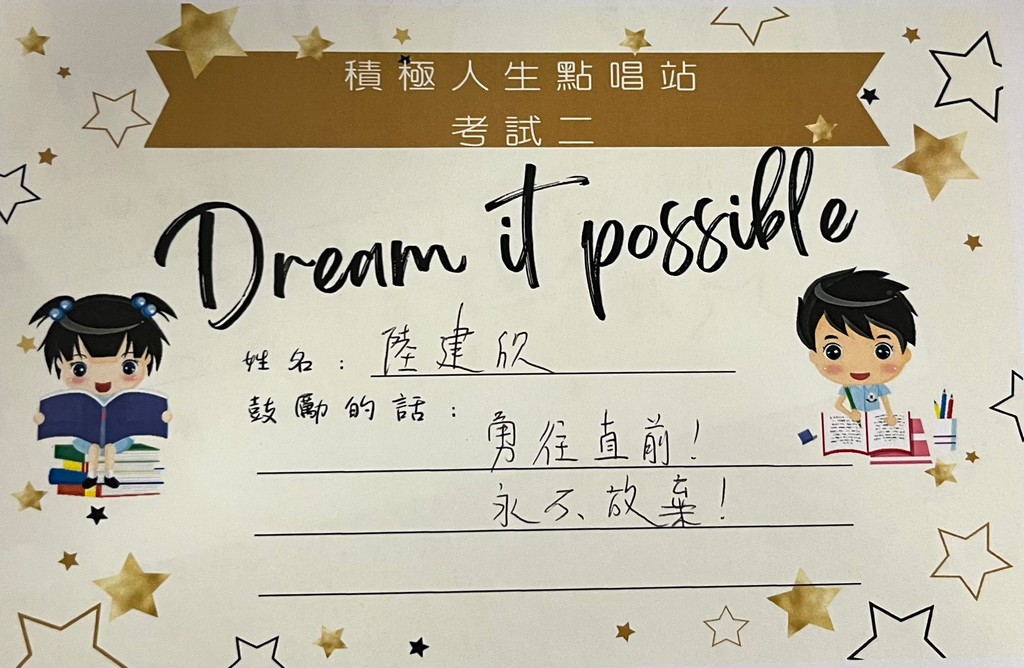 積極人生點唱站
考試二
Dream it possible
姓名：陸建欣
鼓勵的話：
勇往直前！
永不放棄！